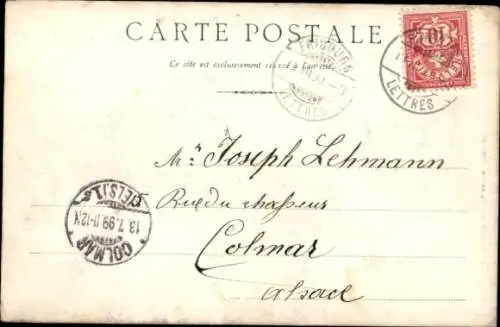 CARTE POSTALE
Ce côté est exclusivement réservé à l'adresse.
FRIBOURG
LETTRES
10
LETTRES
Mr. Joseph Lehmann
Rue du chasseur
Colmar
Alsace
COLMAR
13.7.99.11-12N
(ELS.) 1.s